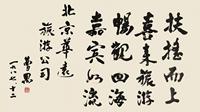 扶摇而上
喜来旅游
畅观四海
嘉宾如流
北京华远
旅游公司
一九八七·十二